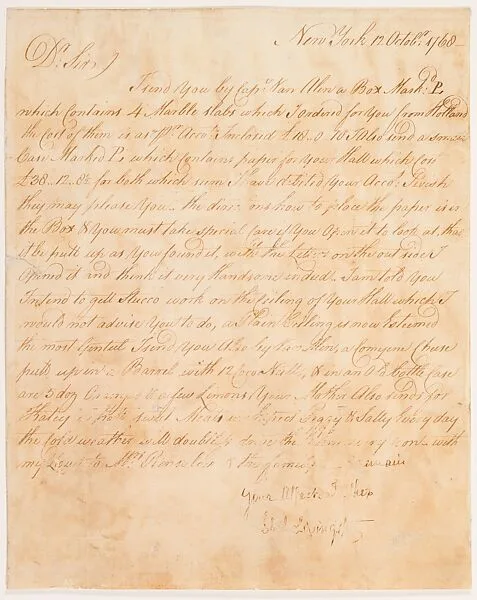 New York 12 Octobr. 1768
Dr. Sir,
I send You by Capn. Van Alen a Box Markd. P
which Contains 4 Marble slabs which I ordered for You from Holland
the Cost of them is as Pr. Accot. Inclosed £18.. I Also send a
Case Marked P which Contains paper for Your Hall which Cost
£38..12..8 for both which sum I have debited Your Accot. I wish
they may please You the directions how to place the paper is in
the Box & You must take special Care if You Open it to look at, that
it be put up as You found it, with the Letters on the out side I
Opened it and think it very Handsome indeed. I am told You
Intend to gett Stucco work on the Ceiling of Your Hall which I
would not advise You to do, a Plain Ceiling is now Esteemed
the most Genteel I send You Also by Van Alen, a Cheese
putt up in a Barrel with 12 Coco Nutts, & in an Old Case
are 5 doz Oranges & a few Lemons Your Mother Also sends for
sweet Meats Peggy & Sally Every day
the Cold weather will
my Love to Mrs. Rensselaer & the family I Remain
Your